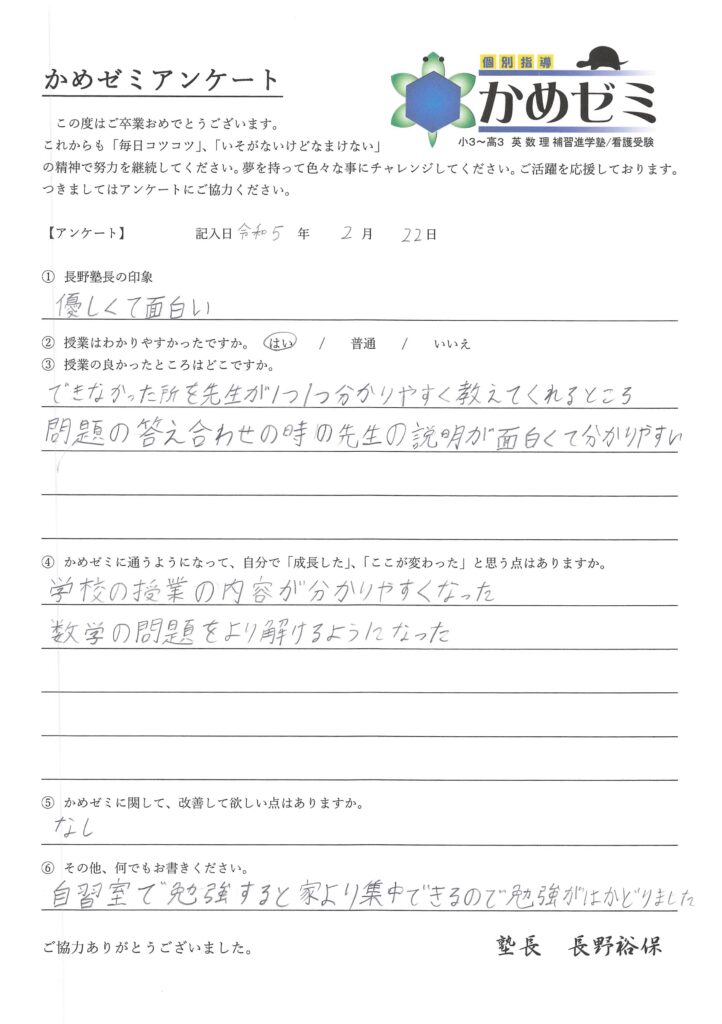 かめゼミアンケート
個別指導
かめゼミ
小3～高3 英数理 補習進学塾/看護受験
この度はご卒業おめでとうございます。
これからも「毎日コツコツ」、「いそがないけどなまけない」
の精神で努力を継続してください。夢を持って色々な事にチャレンジしてください。ご活躍を応援しております。
つきましてはアンケートにご協力ください。
【アンケート】 記入日 令和5 年 2 月 22 日
① 長野塾長の印象
優しくて面白い
② 授業はわかりやすかったですか。 はい / 普通 / いいえ
③ 授業の良かったところはどこですか。
できなかった所を先生が1つ1つ分かりやすく教えてくれるところ
問題の答え合わせの時の先生の説明が面白くて分かりやすい
④ かめゼミに通うようになって、自分で「成長した」、「ここが変わった」と思う点はありますか。
学校の授業の内容が分かりやすくなった
数学の問題をより解けるようになった
⑤ かめゼミに関して、改善して欲しい点はありますか。
なし
⑥ その他、何でもお書きください。
自習室で勉強すると家より集中できるので勉強がはかどりました
ご協力ありがとうございました。
塾長 長野裕保